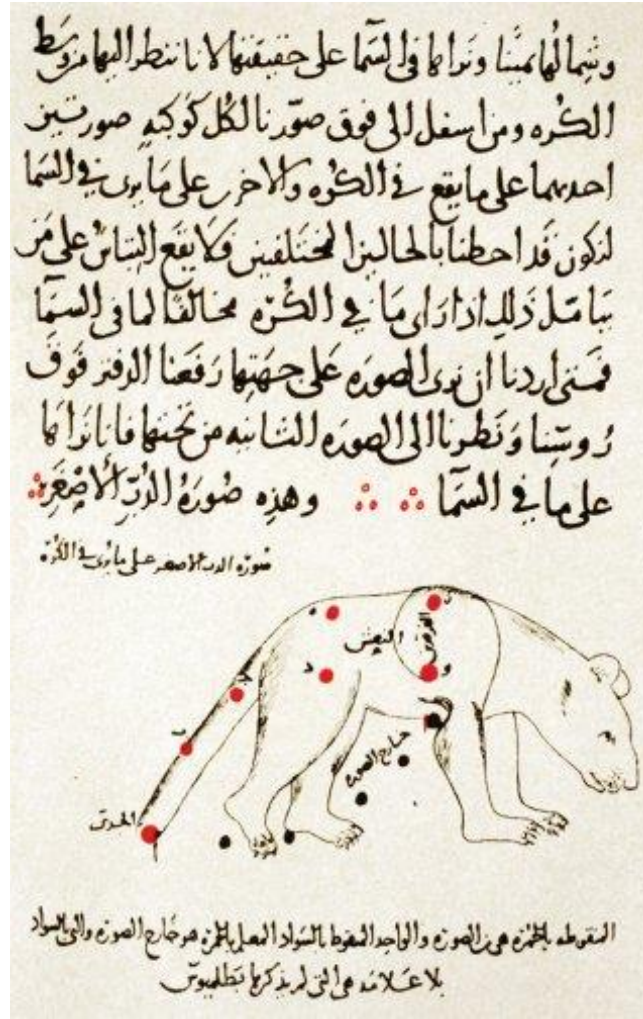 وشمالها يمينا ونراها في السما على حقيقتها لاننا ننظر اليها من وسط
الكره ومن اسفل الى فوق صوّرنا لكل كوكبه صورتين
احديهما على ما يقع في الكره والاخرى على ما يرى في السما
لنكون قد احطنا بالحالين المختلفين فلا يقع التباس على من
يتامل ذلك اذا راى ما في الكره مخالفا لما في السما
فمتى اردنا ان نرى الصوره على جهتها رفعنا الدفتر فوق
روسنا ونظرنا الى الصوره الثانيه من تحتها فانا نراها
على ما في السما وهذه صورة الدب الاصغر
صورة الدب الاصغر على ما يرى في الكرة
النعش
الفرقدين
خارج الصورة
الجدى
المنقوطه بالحمره هي من الصوره والواحد المنقوط بالسواد المعلم بالحمره هو خارج الصوره والتي بالسواد
بلا علامه هي التي لم يذكرها بطلميوس